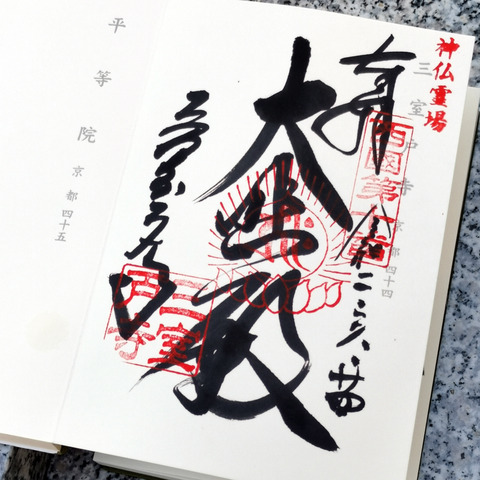 神仏霊場
三室戸寺 京都四十四
奉拝
西國第十番
令和二・六・廿四
大悲殿
三室戸寺
三室戸寺
平等院 京都四十五